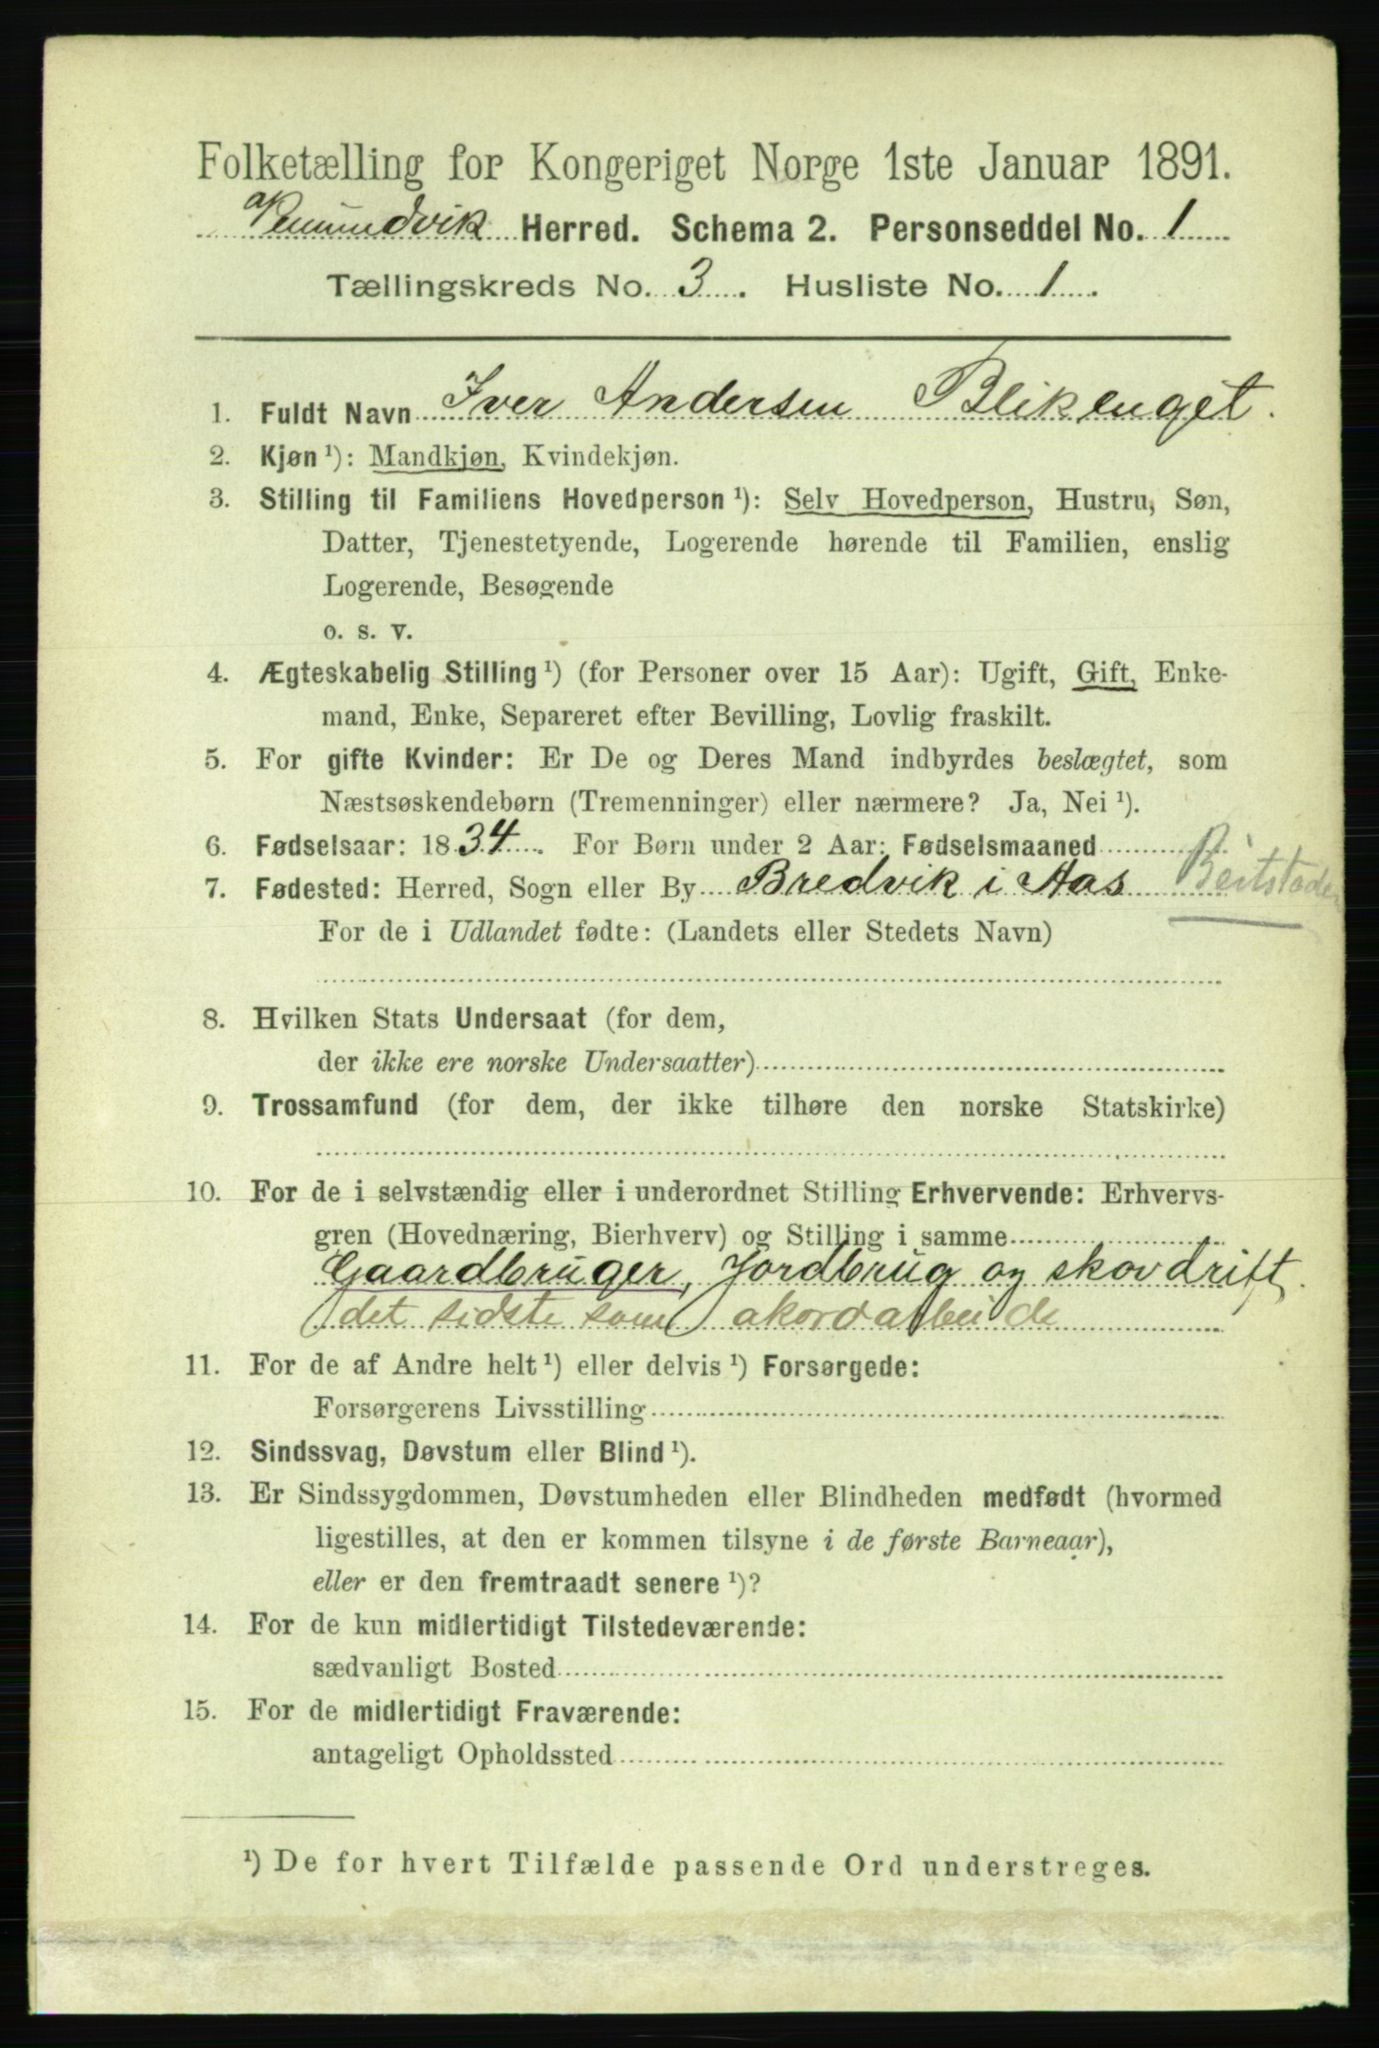 Folketælling for Kongeriget Norge 1ste Januar 1891.
Vemundvik Herred. Schema 2. Personseddel No. 1
Tællingskreds No. 3. Husliste No. 1.
1. Fuldt Navn Iver Andersen Blikenget.
2. Kjøn ¹): Mandkjøn, Kvindekjøn.
3. Stilling til Familiens Hovedperson ¹): Selv Hovedperson, Hustru, Søn,
Datter, Tjenestetyende, Logerende hørende til Familien, enslig
Logerende, Besøgende
o. s. v.
4. Ægteskabelig Stilling ¹) (for Personer over 15 Aar): Ugift, Gift, Enke-
mand, Enke, Separeret efter Bevilling, Lovlig fraskilt.
5. For gifte Kvinder: Er De og Deres Mand indbyrdes beslægtet, som
Næstsøskendebørn (Tremenninger) eller nærmere? Ja, Nei ¹).
6. Fødselsaar: 1834. For Børn under 2 Aar: Fødselsmaaned
7. Fødested: Herred, Sogn eller By Bredvik i Aas Beitstaden
For de i Udlandet fødte: (Landets eller Stedets Navn)
8. Hvilken Stats Undersaat (for dem,
der ikke ere norske Undersaatter)
9. Trossamfund (for dem, der ikke tilhøre den norske Statskirke)
10. For de i selvstændig eller i underordnet Stilling Erhvervende: Erhvervs-
gren (Hovednæring, Bierhverv) og Stilling i samme
Gaardbruger, Jordbrug og skovdrift.
(det sidste som akordarbeide
11. For de af Andre helt ¹) eller delvis ¹) Forsørgede:
Forsørgerens Livsstilling
12. Sindssvag, Døvstum eller Blind ¹).
13. Er Sindssygdommen, Døvstumheden eller Blindheden medfødt (hvormed
ligestilles, at den er kommen tilsyne i de første Barneaar),
eller er den fremtraadt senere ¹)?
14. For de kun midlertidigt Tilstedeværende:
sædvanligt Bosted
15. For de midlertidigt Fraværende:
antageligt Opholdssted
¹) De for hvert Tilfælde passende Ord understreges.